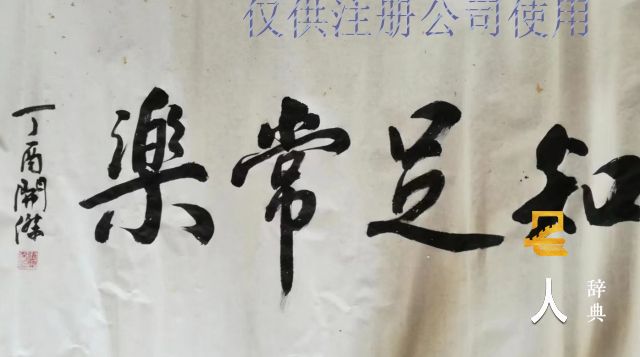 仅供注册公司使用
知足常樂
丁酉開傑
名人
辞典